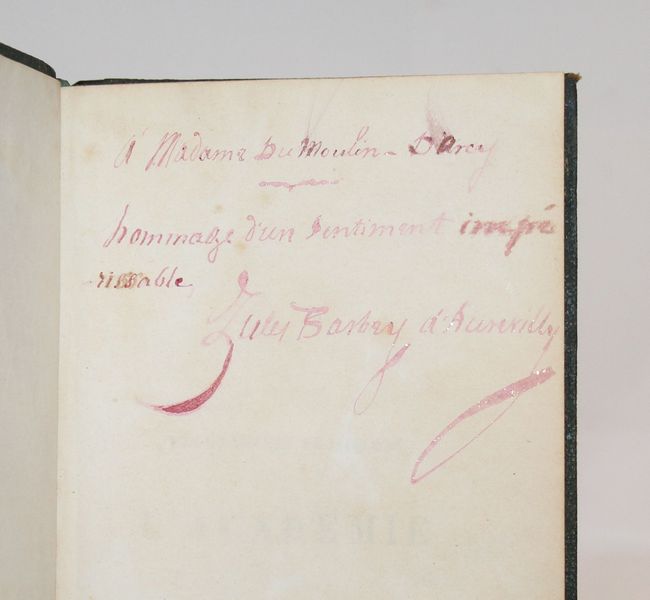 à Madame Du Moulin - D'Arcy
hommage d'un Sentiment impé
-rissable,
Jules Barbey d'Aurevilly